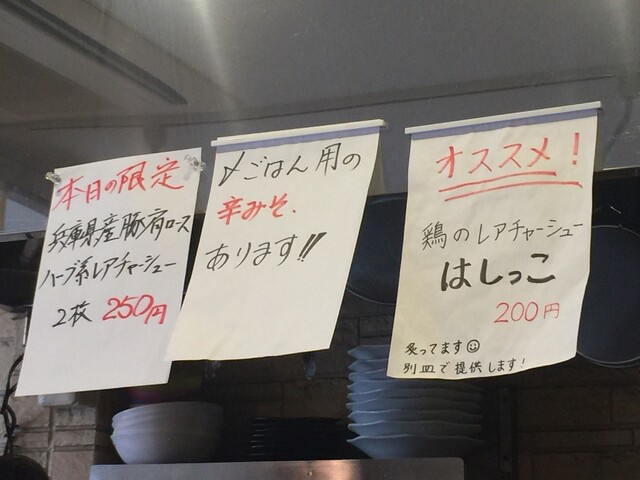 本日の限定
兵庫県産豚肩ロース
ハーブ系レアチャーシュー
2枚 250円
〆ごはん用の
辛みそ.
あります!!
オススメ!
鶏のレアチャーシュー
はしっこ
200円
炙ってます☺
別皿で提供します!